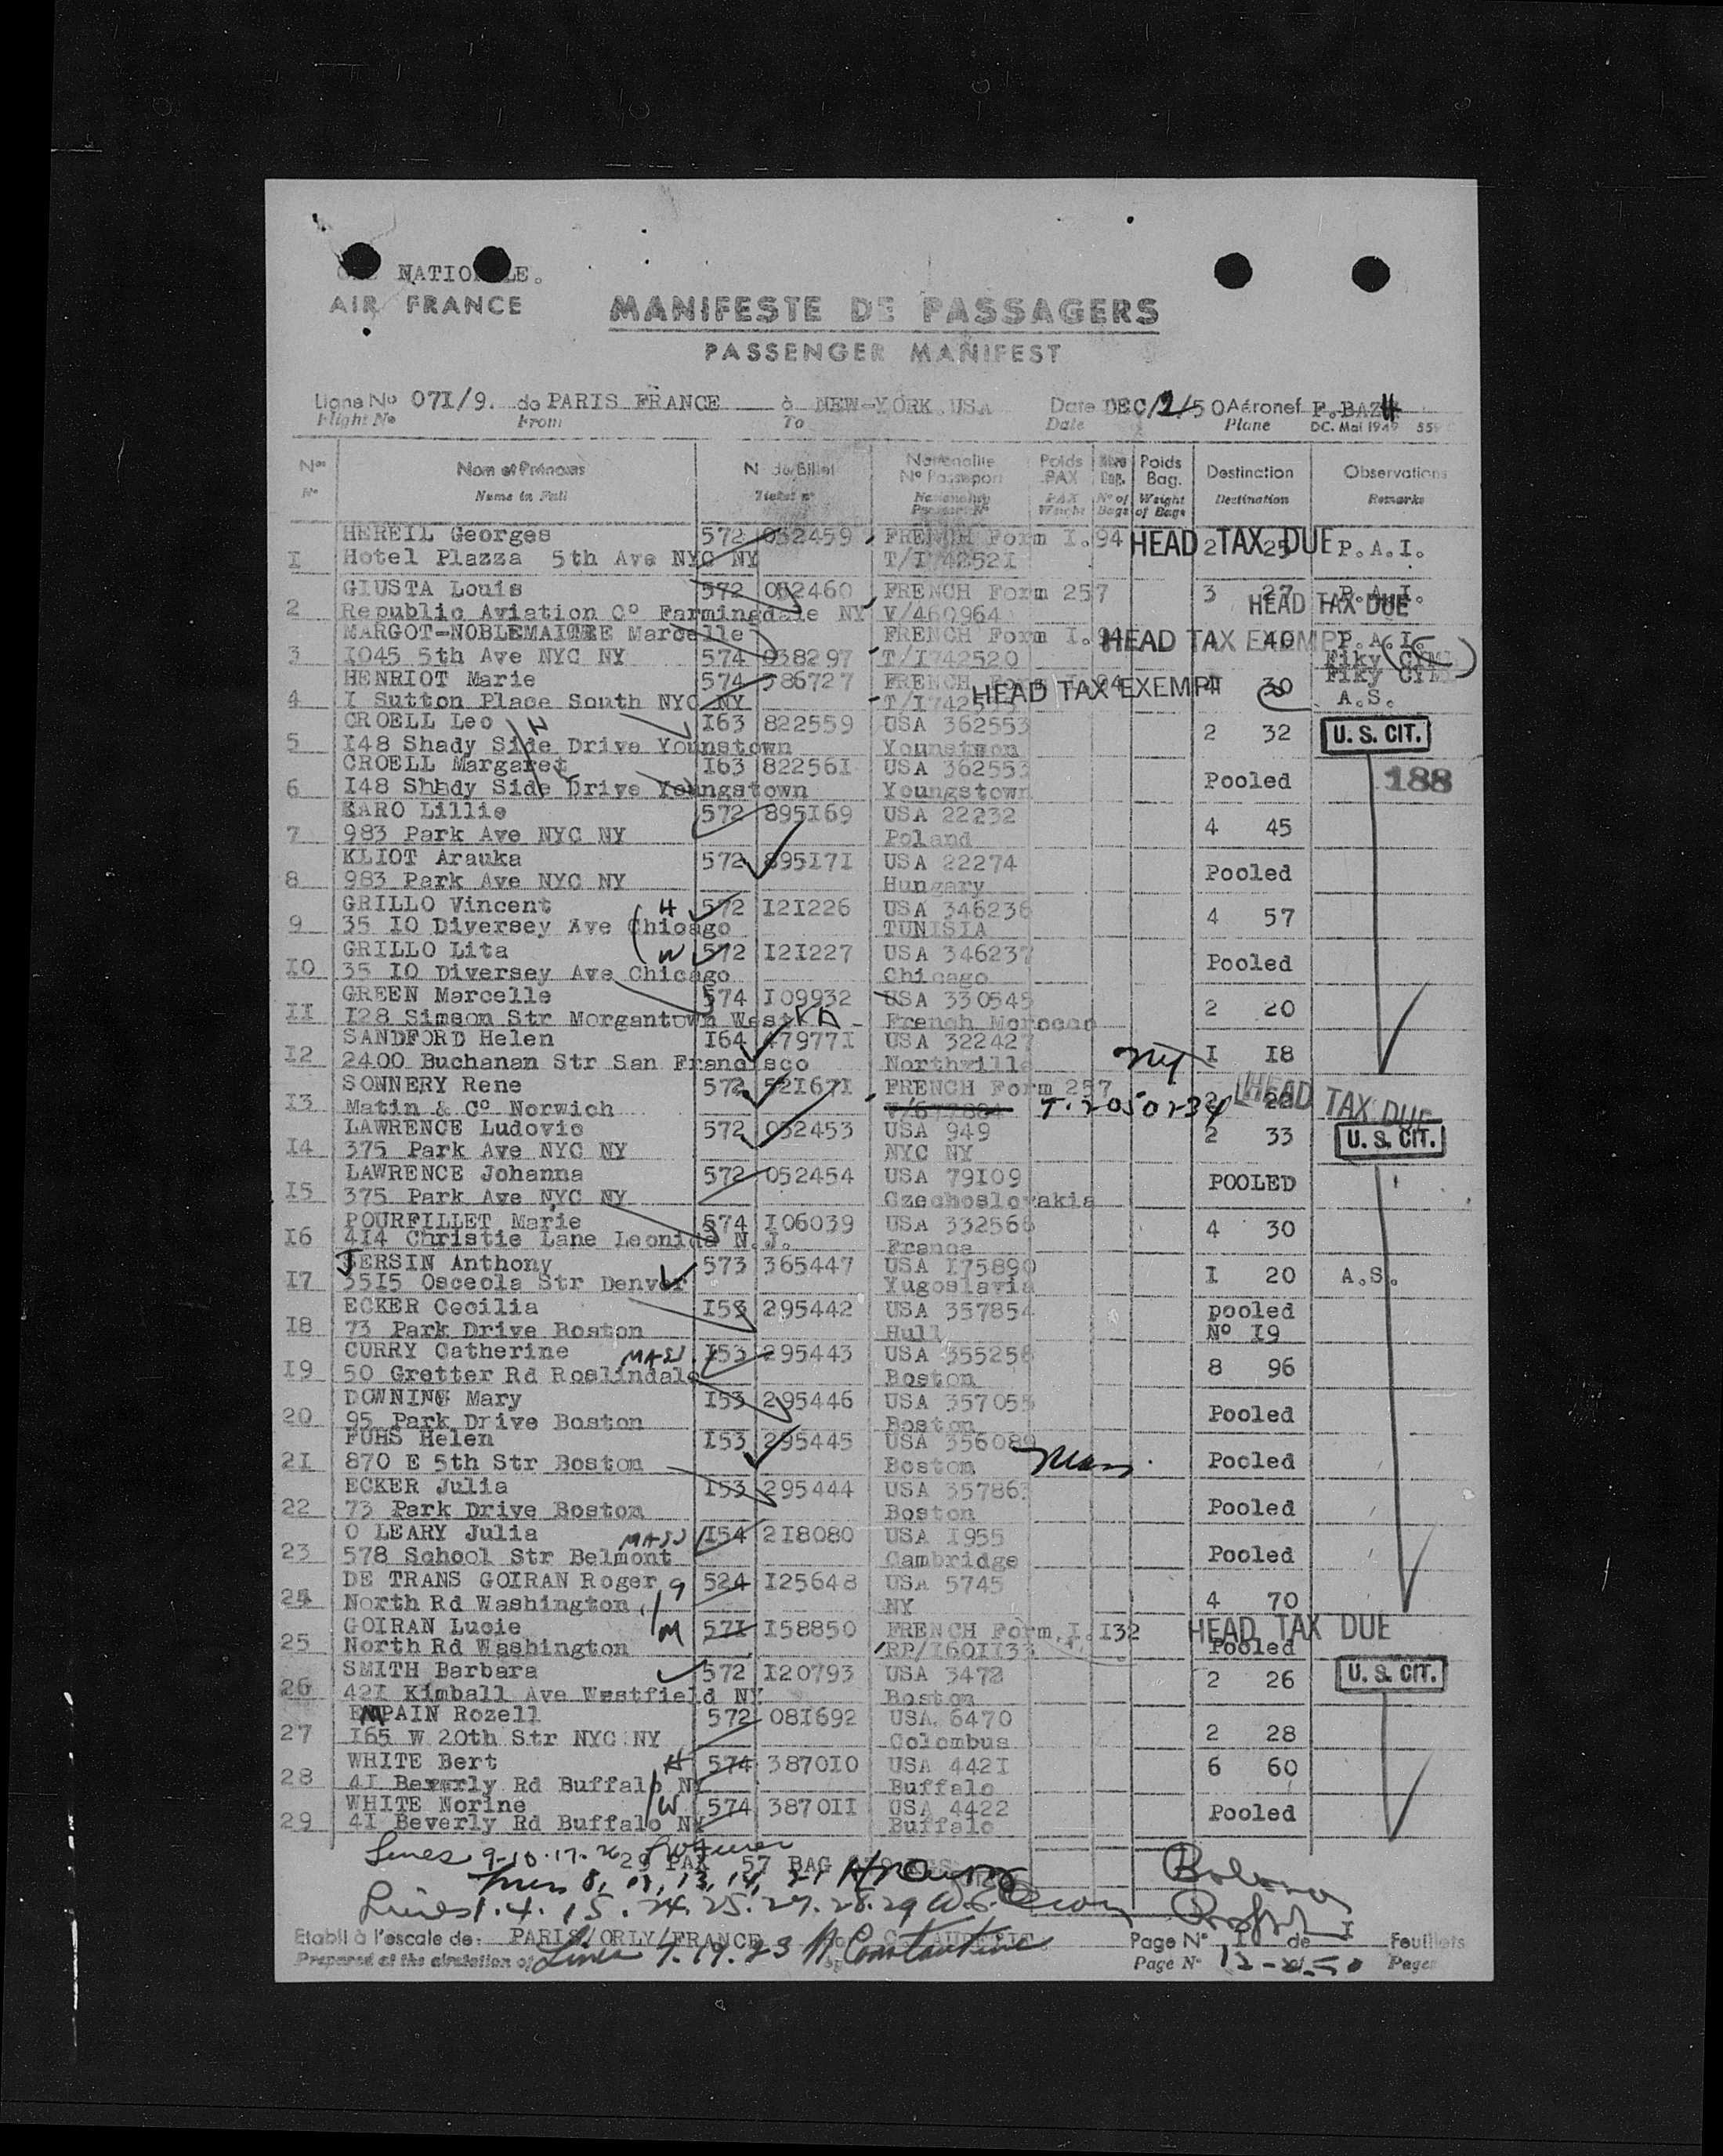 NATIONALE.
AIR FRANCE
MANIFESTE DE PASSAGERS
PASSENGER MANIFEST
Ligne No 07I/9. de PARIS FRANCE à NEW-YORK USA Date DEC/2/50 Aéronef F.BAZ
Flight No From To Date Plane DC. Mai 1949
Nos Nom et Prénoms N du Billet Nationalité N° Passeport Poids PAX Nbre Bag. Poids Bag. Destination Observations
N° Name in Full Ticket n° Nationality Passport N° PAX Weight N° of Bags Weight of Bags Destination Remarks
HEREIL Georges 572 052459 FRENCH Form I.94 HEAD TAX DUE 2 25 P.A.I.
I Hotel Plazza 5th Ave NYC NY T/I742521
GIUSTA Louis 572 052460 FRENCH Form 257 3 27 P.A.I.
2 Republic Aviation C° Farmingdale NY V/460964 HEAD TAX DUE
MARGOT-NOBLEMAITRE Marcelle FRENCH Form I.94 HEAD TAX EXEMPT 40 P.A.I.
3 I045 5th Ave NYC NY 574 038297 T/I742520 Fiky
HENRIOT Marie 574 386727 FRENCH HEAD TAX EXEMPT 30 Fiky
4 I Sutton Place South NYC NY A.S.
CROELL Leo H I63 822559 USA 362553 2 32 U. S. CIT.
5 I48 Shady Side Drive Younstown Younstwon
CROELL Margaret I63 82256I USA 362553 Pooled 188
6 I48 Shady Side Drive Youngstown Youngstown
KARO Lillie 572 895I69 USA 22232 4 45
7 983 Park Ave NYC NY Poland
KLIOT Arauka 572 895I7I USA 22274 Pooled
8 983 Park Ave NYC NY Hungary
GRILLO Vincent H 572 I2I226 USA 346236 4 57
9 35 IO Diversey Ave Chicago TUNISIA
GRILLO Lita W 572 I2I227 USA 346237 Pooled
IO 35 IO Diversey Ave Chicago Chicago
GREEN Marcelle 574 I09932 USA 330545 2 20
II I28 Simson Str Morgantown West VA French Morocco
SANDFORD Helen I64 47977I USA 322427 I I8
I2 2400 Buchanan Str San Francisco Northville NY
SONNERY Rene 572 52I67I FRENCH Form 257 2 28 HEAD TAX DUE
I3 Matin & C° Norwich T.2050234
LAWRENCE Ludovic 572 052453 USA 949 2 33 U. S. CIT.
I4 375 Park Ave NYC NY NYC NY
LAWRENCE Johanna 572 052454 USA 79I09 POOLED
I5 375 Park Ave NYC NY Czechoslovakia
POURFILLET Marie 574 I06039 USA 332566 4 30
I6 4I4 Christie Lane Leonida N.J. France
JERSIN Anthony 573 365447 USA I75890 I 20 A.S.
I7 35I5 Osceola Str Denver Yugoslavia
ECKER Cecilia I53 295442 USA 357854 pooled
I8 73 Park Drive Boston Hull N° I9
CURRY Catherine MASS. I53 295443 USA 355256 8 96
I9 50 Gretter Rd Roslindale Boston
DOWNING Mary I53 295446 USA 357055 Pooled
20 95 Park Drive Boston Boston
FUHS Helen I53 295445 USA 356089 Pooled
2I 870 E 5th Str Boston Boston Mass.
ECKER Julia I53 295444 USA 357863 Pooled
22 73 Park Drive Boston Boston
O LEARY Julia MASS I54 2I8080 USA I955 Pooled
23 578 School Str Belmont Cambridge
DE TRANS GOIRAN Roger 524 I25648 USA 5745 4 70
24 North Rd Washington NY
GOIRAN Lucie M 57I I58850 FRENCH Form I.I32 HEAD TAX DUE
25 North Rd Washington RP/I60II33 Pooled
SMITH Barbara 572 I20793 USA 3472 2 26 U. S. CIT.
26 42I Kimball Ave Westfield NY Boston
EMPAIN Rozell 572 08I692 USA. 6470 2 28
27 I65 W 20th Str NYC NY Colombus
WHITE Bert H 574 3870IO USA 442I 6 60
28 4I Beverly Rd Buffalo NY Buffalo
WHITE Norine W 574 3870II USA 4422 Pooled
29 4I Beverly Rd Buffalo NY Buffalo
Lines 9-10.17.26
29 PAX 57 BAG
Lines 1.4.15.24.25.27.28.29
Etabli à l'escale de: PARIS/ORLY/FRANCE Page N° I de I Feuillets
Prepared at the Lines 7.19.23 A Constantine Page N° 12-2-50 Pages